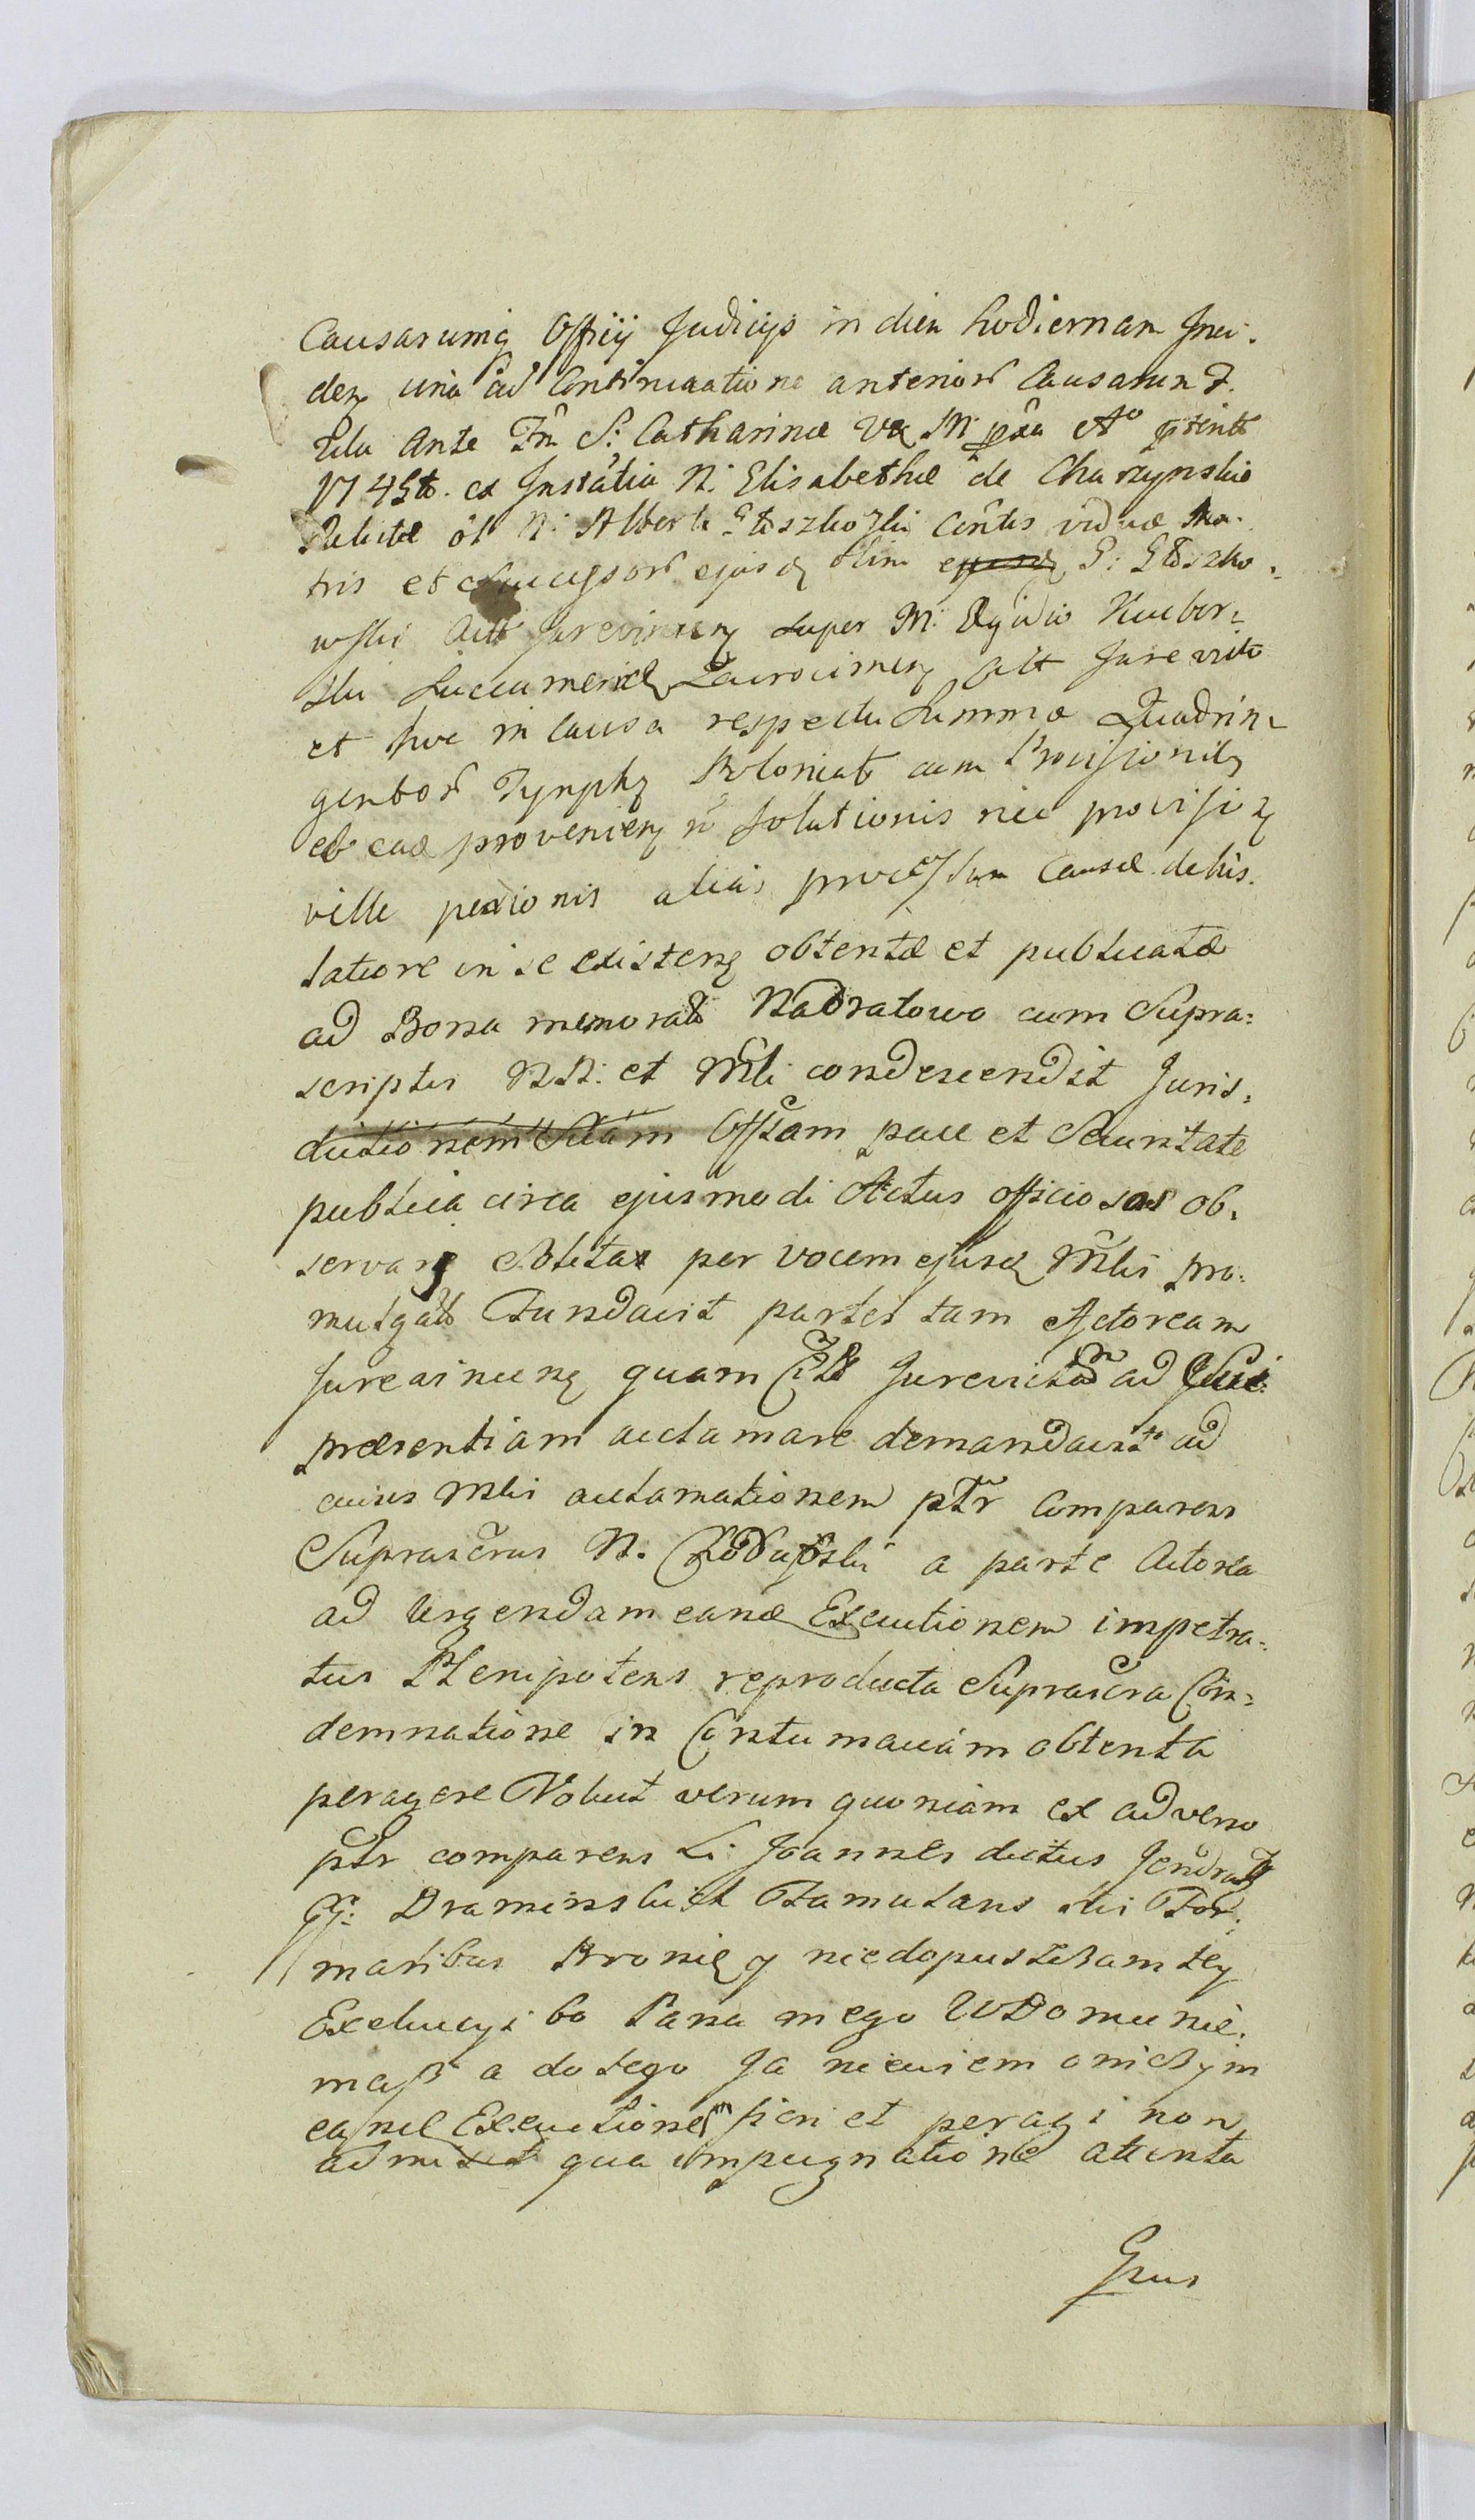 Causarumq Officij Judicijs in diem hodiernam Inci-
den unà ad Continuatione anterior Causarum F.
ante Fm S: Catharinæ V M: pxa Aº
1745to. ex Instãtia N: Elisabethæ de Charzynskie
Relictæ ol N: Alberti Głoszkowski Contis viduæ Ma-
tris et Successor ejusq olim ejusq G: Głoszko-
wski Actt Jurevincen super M: Egidio
Succamerid Zacrocimen Citt Jurevicto
et hoc in Causa respectu Summæ Quadrin-
gentor Tynph Polonicat cum Provisionib
ab ead provenien nõ Solutionis nec provisi
ville pexionis alias processum Causæ dehis.
latiore in se existen obtentæ et publicatæ
ad Bona memorat Nadratowo cum Supra-
scriptis NN: et Mli condescendit Juris-
dictionem Suam Offsam pace et Securitate
publica circa ejusmodi Actus officiosos ob-
servan per vocem ejusd Mlis pro-
mulgatt Fundavit partes tam Actoream
Jurevincen quam Citt Jurevictam ad Sui
præsentiam acclamare demandavit ad
cuius Mlis acclamationem pttr Comparens
Suprascrus N. a parte Actorea
ad Urgendam eand Executionem impetra-
tus Plenipotens reproducta Suprascra Con-
demnatione in Contumaciam obtenta
peragere Voluit verum quoniam ex adverso
pttr comparens L: Joannes dictus Jendrat
G: Draminskich Famulans his For-
malibus Bronię y niedopuszczam tey
Exekucyi bo Pana mego W Domu nie-
masz a do tego Ja niewiem oniczym
eand Executionem fieri et peragi non
admisit qua impugnatione attenta
Gnus